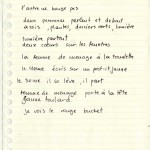 l'autre ne bouge pas
deux panneaux partout et debout
assis, plantes, derniers sorts, lumière
lumière partout
deux cœurs sur les fenêtres
la femme de ménage à la toilette
le 4ème écris sur un petit jaune
le 3ème il se lève, il part
femme de ménage porte à la tête
jaune foulard
je vois le rouge bucket